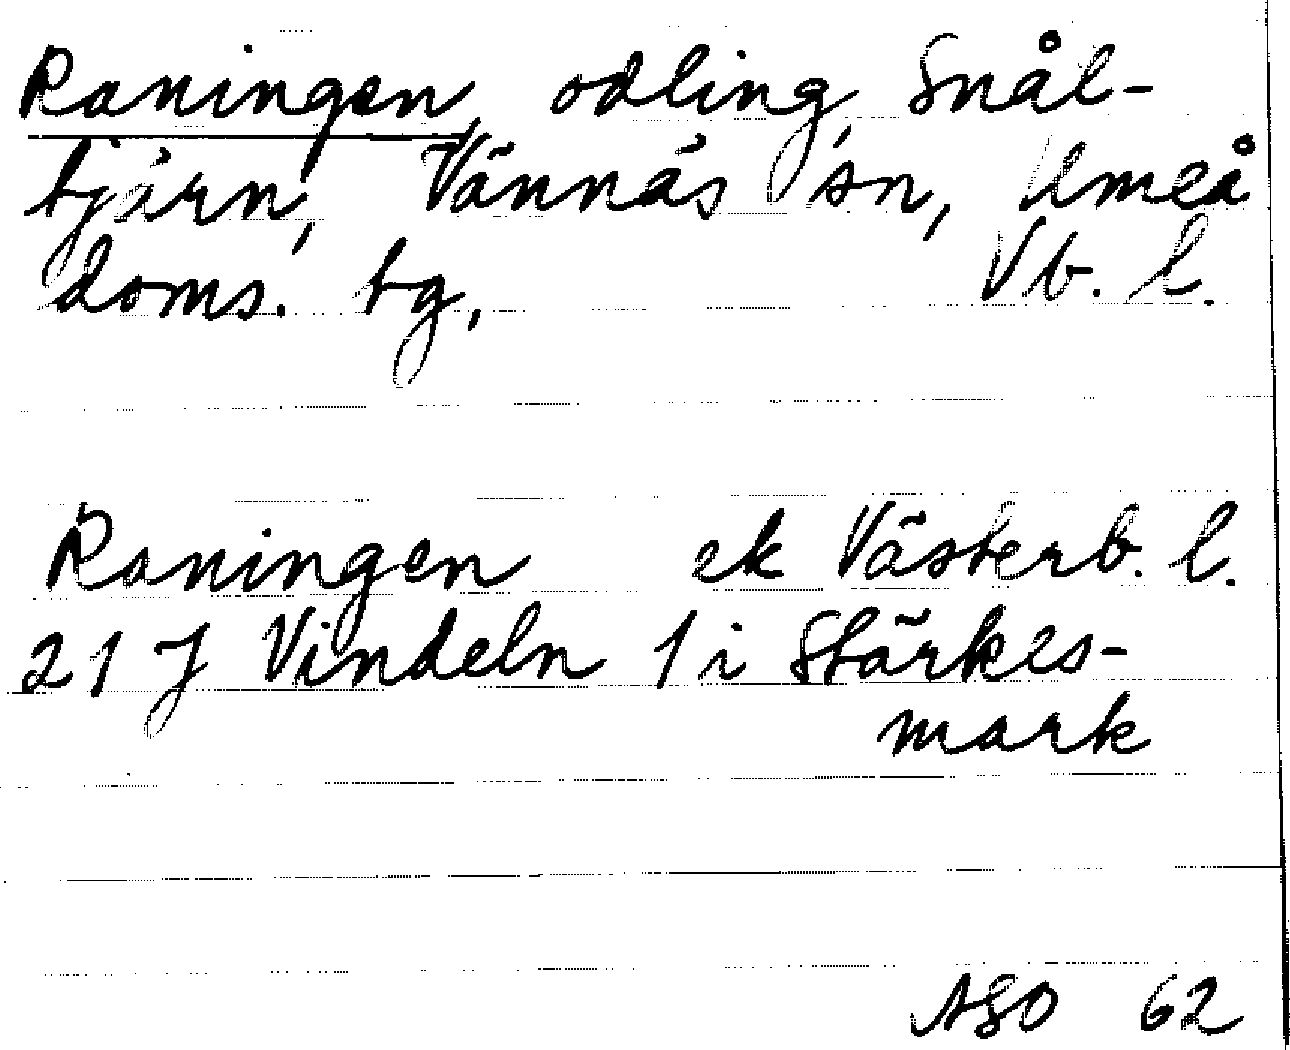 Raningen, odling, Snål-
tjärn, Vännäs sn, Umeå
doms. tg, Vb. l.
Raningen ek Västerb. l.
21 J Vindeln 1 i Stärkes-
mark
ASO 62